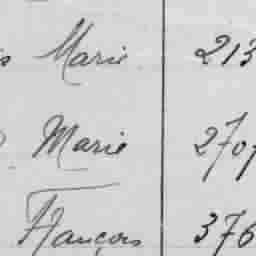 Marie 213
Marie 2707
François 376